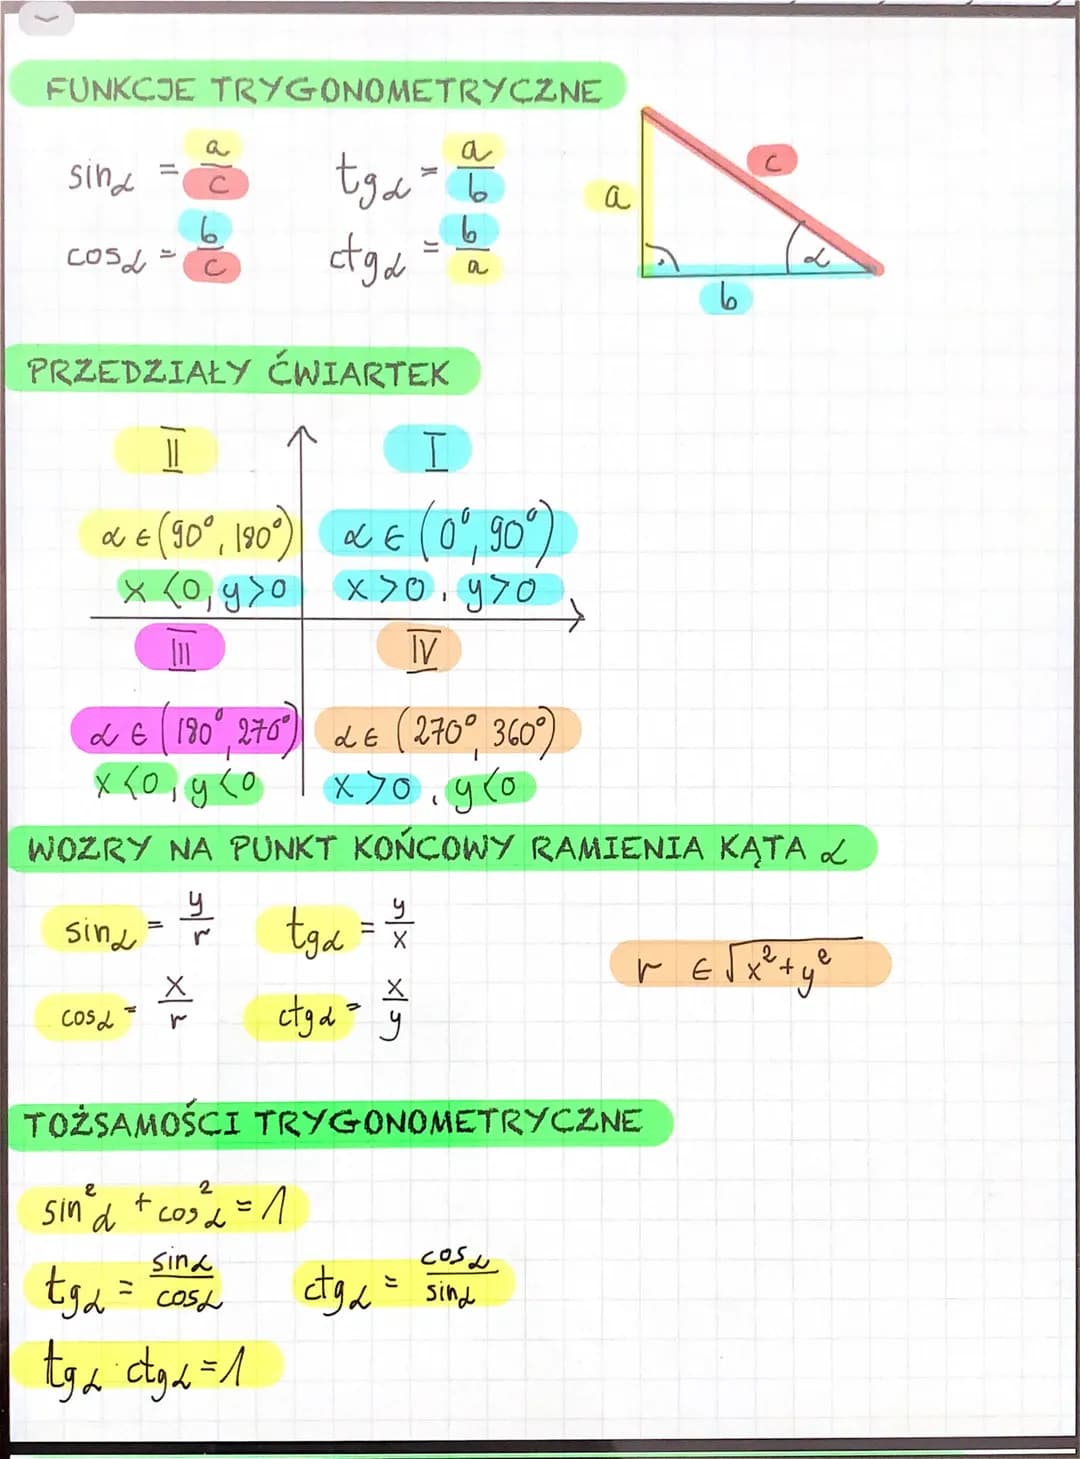 FUNKCJE TRYGONOMETRYCZNE
sinα = a/c tgα = a/b
cosα = b/c ctgα = b/a
a c α b
PRZEDZIAŁY ĆWIARTEK
II I
α ∈ (90°, 180°) α ∈ (0°, 90°)
x <0, y>0 x >0, y>0
III IV
α ∈ (180°, 270°) α ∈ (270°, 360°)
x <0, y<0 x >0, y<0
WOZRY NA PUNKT KOŃCOWY RAMIENIA KĄTA α
sinα = y/r tgα = y/x
r ∈ √x²+y²
cosα = x/r ctgα = x/y
TOŻSAMOŚCI TRYGONOMETRYCZNE
sin²α + cos²α = 1
tgα = sinα/cosα ctgα = cosα/sinα
tgα · ctgα = 1